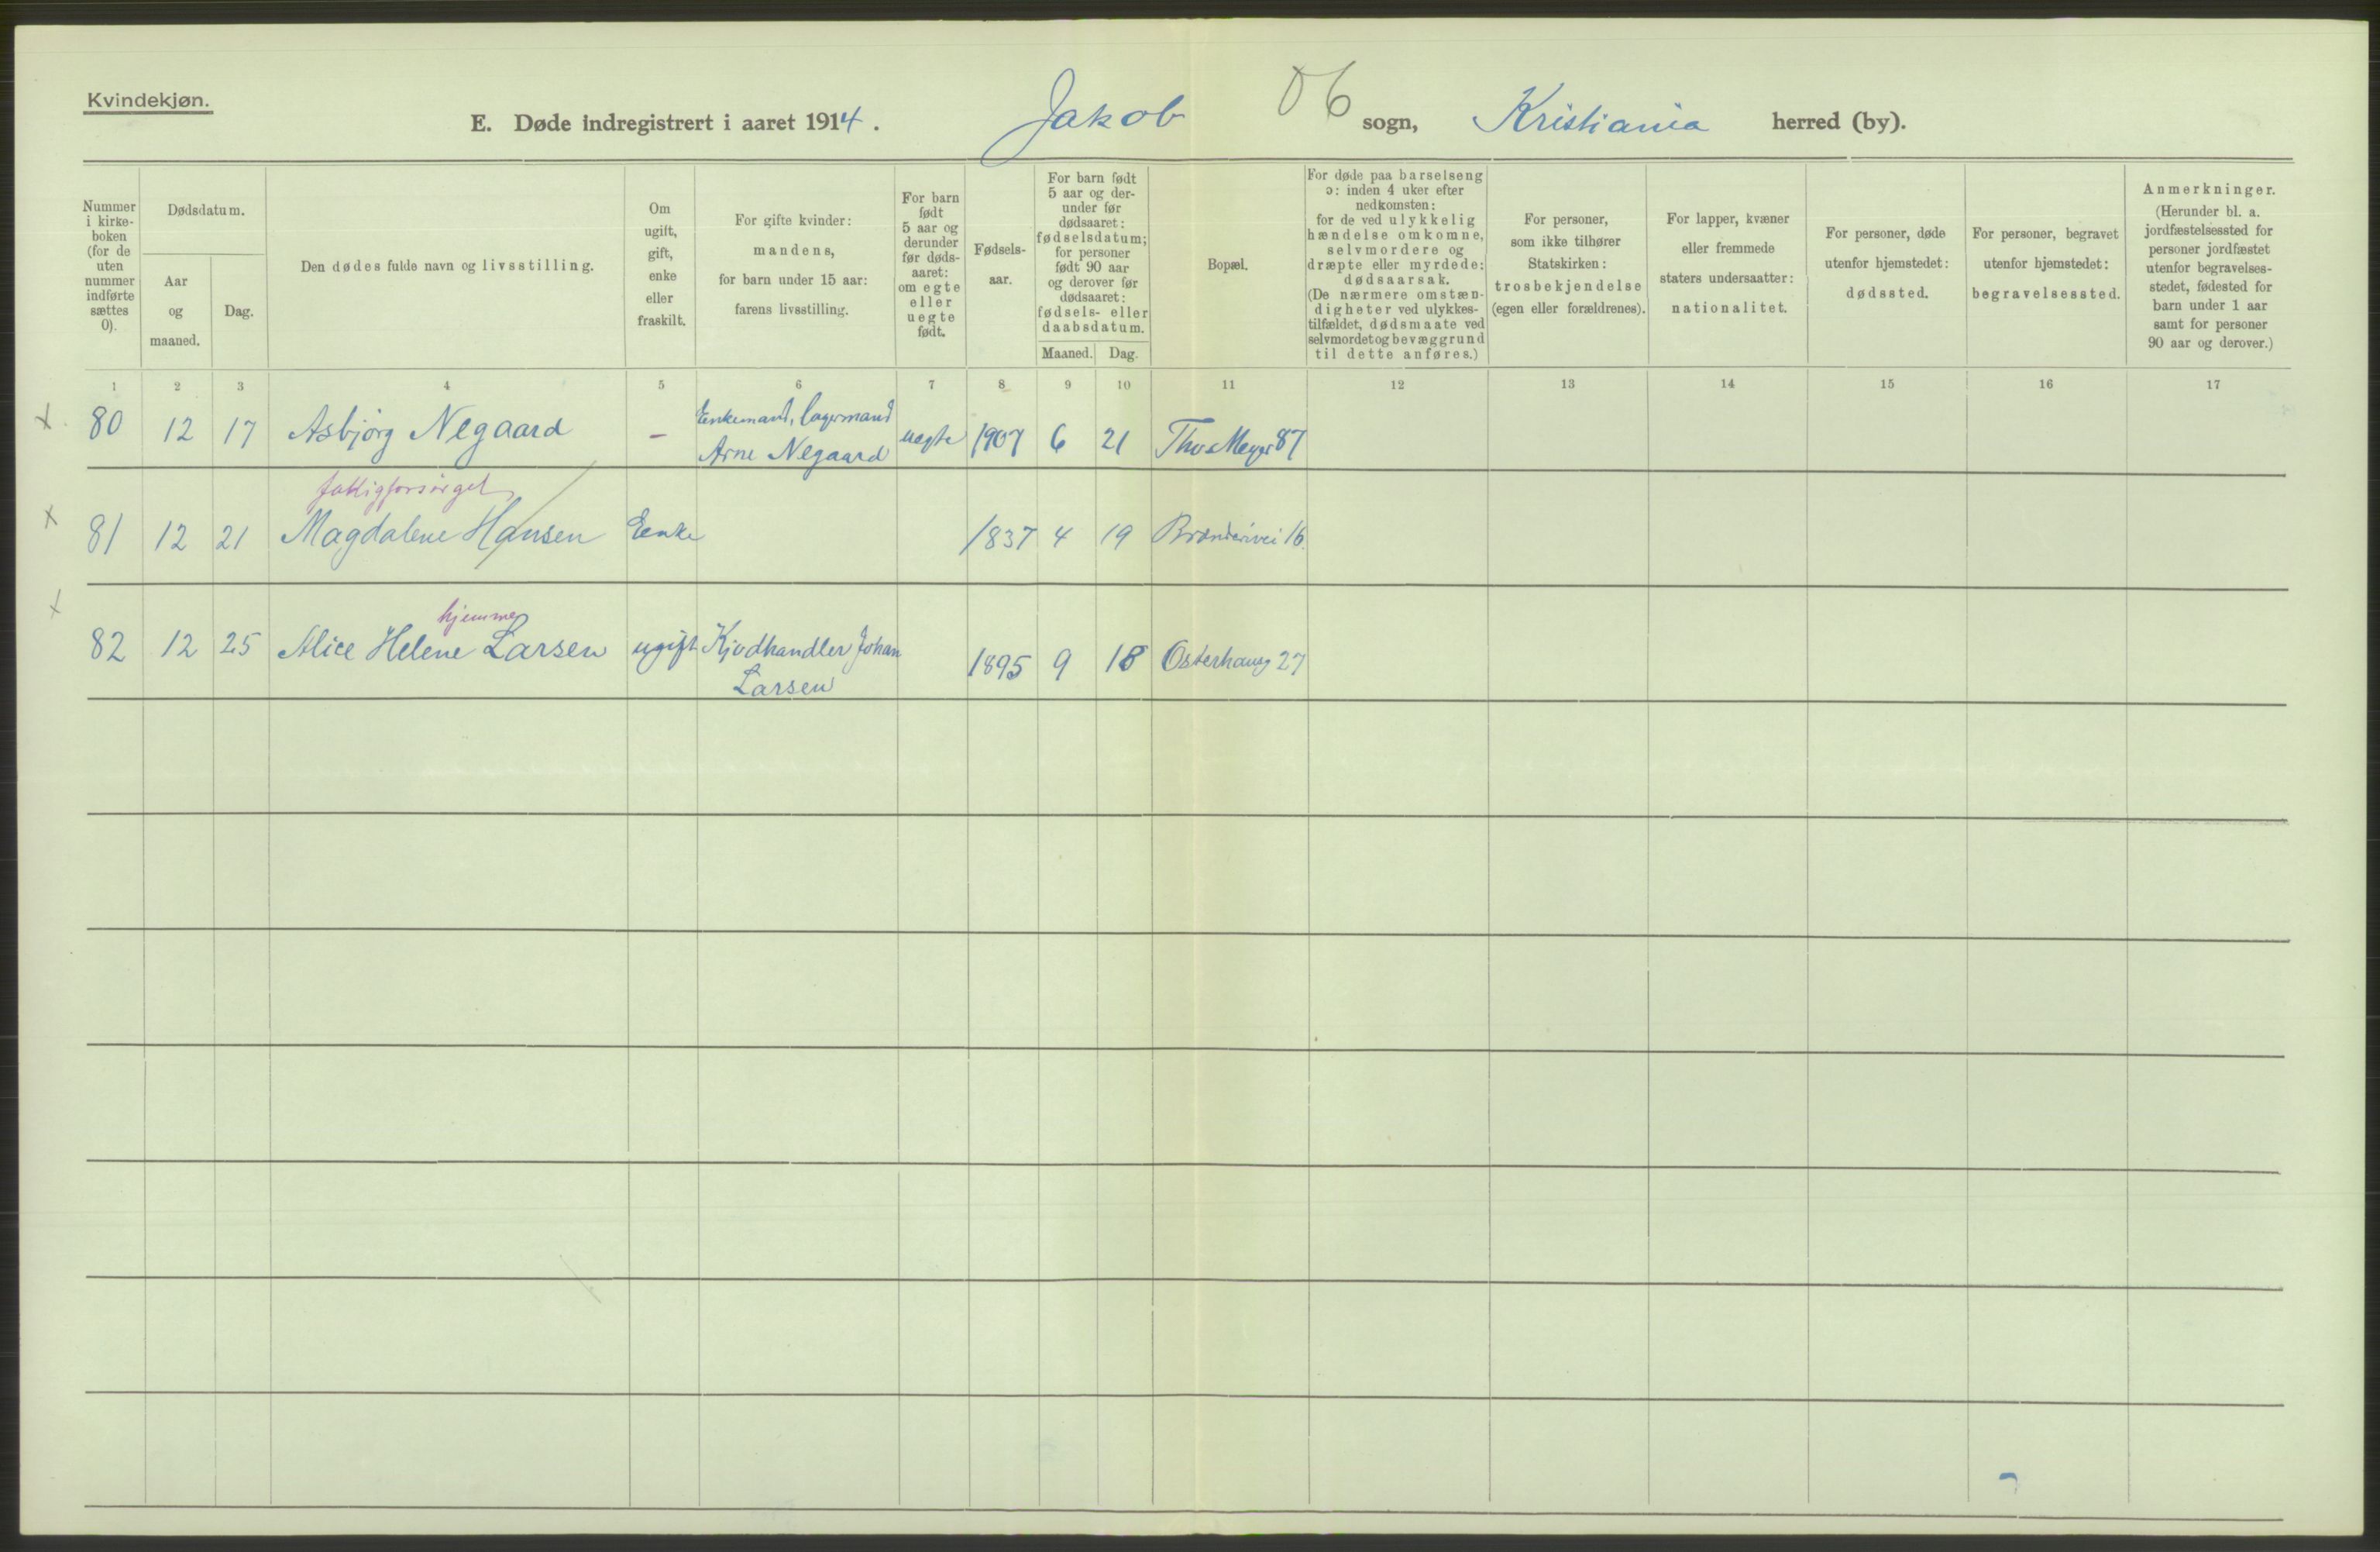 Kvindekjøn.
E. Døde indregistrert i aaret 1914. Jakob 06 sogn, Kristiania herred (by).
Nummer i kirke- boken (for de uten nummer indførte sættes 0).
Dødsdatum.
Aar og maaned.
Dag.
Den dødes fulde navn og livsstilling.
Om ugift, gift, enke eller fraskilt.
For gifte kvinder: mandens, for barn under 15 aar: farens livsstilling.
For barn født 5 aar og derunder før døds- aaret: om egte eller uegte født.
Fødsels- aar.
For barn født 5 aar og der- under før dødsaaret: fødselsdatum; for personer født 90 aar og derover før dødsaaret: fødsels- eller daabsdatum.
Maaned. Dag.
Bopæl.
For døde paa barselseng ɔ: inden 4 uker efter nedkomsten: for de ved ulykkelig hændelse omkomne, selvmordere og dræpte eller myrdede: dødsaarsak. (De nærmere omstæn- digheter ved ulykkes- tilfældet, dødsmaate ved selvmordet og bevæggrund til dette anføres.)
For personer, som ikke tilhører Statskirken: trosbekjendelse (egen eller forældrenes).
For lapper, kvæner eller fremmede staters undersaatter: nationalitet.
For personer, døde utenfor hjemstedet: dødssted.
For personer, begravet utenfor hjemstedet: begravelsessted.
Anmerkninger. (Herunder bl. a. jordfæstelsessted for personer jordfæstet utenfor begravelses- stedet, fødested for barn under 1 aar samt for personer 90 aar og derover.)
1 2 3 4 5 6 7 8 9 10 11 12 13 14 15 16 17
x 80 12 17 Asbjørg Negaard - Enkemand, lagermand Arne Negaard uegte 1907 6 21 Ths Meyer 87
fattigforsørget
x 81 12 21 Magdalene Hansen Enke 1837 4 19 16
hjemme
x 82 12 25 Alice Helene Larsen ugift Kjødhandler Johan Larsen 1895 9 18 Osterhausg 27